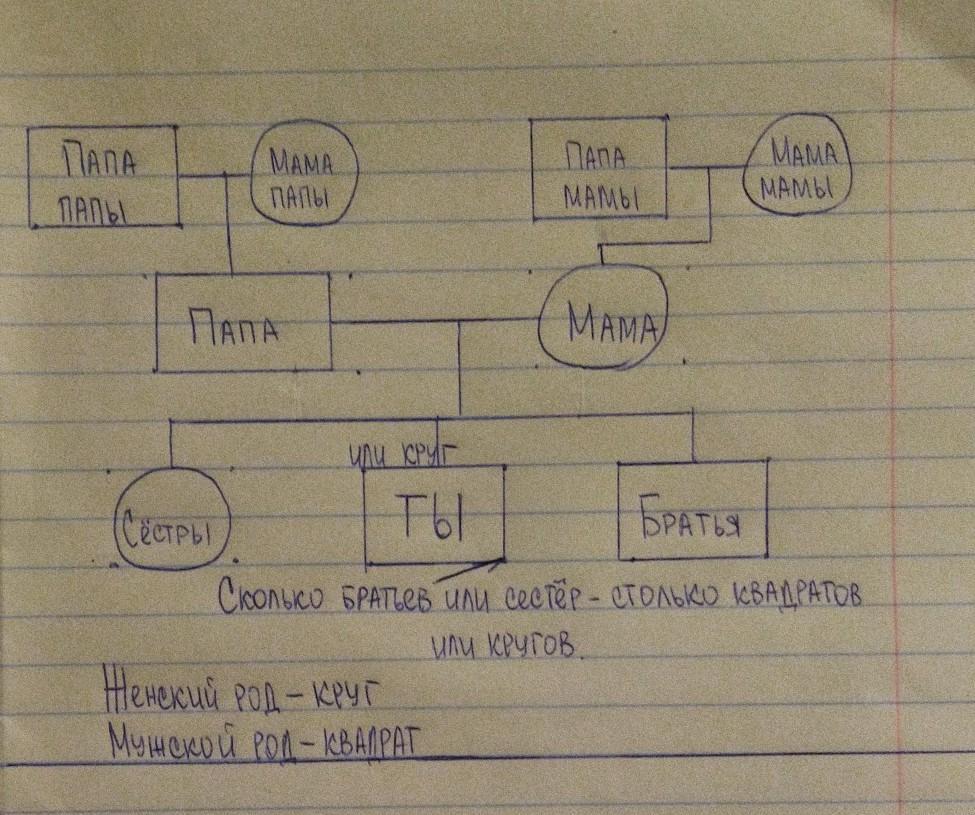 ПАПА
ПАПЫ
МАМА
ПАПЫ
ПАПА
МАМЫ
МАМА
МАМЫ
ПАПА
МАМА
ИЛИ КРУГ
СЁСТРЫ
ТЫ
БРАТЬЯ
СКОЛЬКО БРАТЬЕВ ИЛИ СЕСТЁР – СТОЛЬКО КВАДРАТОВ
ИЛИ КРУГОВ.
ЖЕНСКИЙ РОД – КРУГ
МУЖСКОЙ РОД – КВАДРАТ